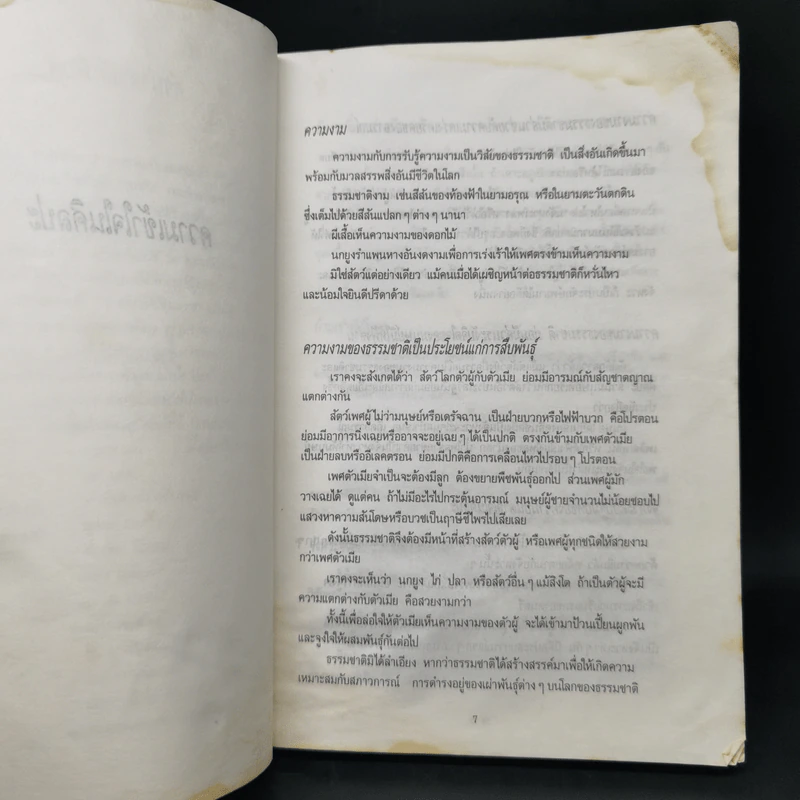 ความงาม
ความงามกับการรับรู้ความงามเป็นวิสัยของธรรมชาติ เป็นสิ่งอันเกิดขึ้นมา
พร้อมกับมวลสรรพสิ่งอันมีชีวิตในโลก
ธรรมชาติงาม เช่นสีสันของท้องฟ้าในยามอรุณ หรือในยามตะวันตกดิน
ซึ่งเต็มไปด้วยสีสันแปลก ๆ ต่าง ๆ นานา
ผีเสื้อเห็นความงามของดอกไม้
นกยูงรำแพนหางอันงดงามเพื่อการเร่งเร้าให้เพศตรงข้ามเห็นความงาม
มิใช่สัตว์แต่อย่างเดียว แม้คนเมื่อได้เผชิญหน้าต่อธรรมชาติก็หวั่นไหว
และน้อมใจยินดีปรีดาด้วย
ความงามของธรรมชาติเป็นประโยชน์แก่การสืบพันธุ์
เราคงจะสังเกตได้ว่า สัตว์โลกตัวผู้กับตัวเมีย ย่อมมีอารมณ์กับสัญชาตญาณ
แตกต่างกัน
สัตว์เพศผู้ไม่ว่ามนุษย์หรือเดรัจฉาน เป็นฝ่ายบวกหรือไฟฟ้าบวก คือโปรตอน
ย่อมมีอาการนิ่งเฉยหรืออาจจะอยู่เฉย ๆ ได้เป็นปกติ ตรงกันข้ามกับเพศตัวเมีย
เป็นฝ่ายลบหรืออีเลคตรอน ย่อมมีปกติคือการเคลื่อนไหวไปรอบ ๆ โปรตอน
เพศตัวเมียจำเป็นจะต้องมีลูก ต้องขยายพืชพันธุ์ออกไป ส่วนเพศผู้มัก
วางเฉยได้ ดูแต่คน ถ้าไม่มีอะไรไปกระตุ้นอารมณ์ มนุษย์ผู้ชายจำนวนไม่น้อยชอบไป
แสวงหาความสันโดษหรือบวชเป็นฤาษีชีไพรไปเสียเลย
ดังนั้นธรรมชาติจึงต้องมีหน้าที่สร้างสัตว์ตัวผู้ หรือเพศผู้ทุกชนิดให้สวยงาม
กว่าเพศตัวเมีย
เราคงจะเห็นว่า นกยูง ไก่ ปลา หรือสัตว์อื่น ๆ แม้สิงโต ถ้าเป็นตัวผู้จะมี
ความแตกต่างกับตัวเมีย คือสวยงามกว่า
ทั้งนี้เพื่อล่อใจให้ตัวเมียเห็นความงามของตัวผู้ จะได้เข้ามาป้วนเปี้ยนผูกพัน
และจูงใจให้ผสมพันธุ์กันต่อไป
ธรรมชาติมิได้ลำเอียง หากว่าธรรมชาติได้สร้างสรรค์มาเพื่อให้เกิดความ
เหมาะสมกับสภาวการณ์ การดำรงอยู่ของเผ่าพันธุ์ต่าง ๆ บนโลกของธรรมชาติ
7